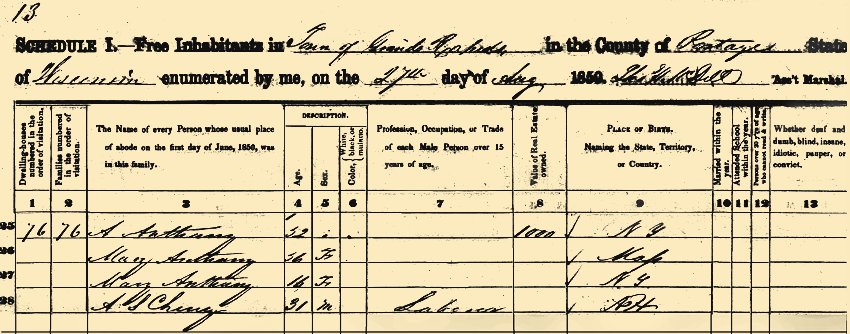 13
SCHEDULE I.—Free Inhabitants in Town of Grand Rapids in the County of Portage State
of Wisconsin enumerated by me, on the 27th day of Aug 1850. Ass't Marshal.
Dwelling-houses numbered in the order of visitation.
Families numbered in the order of visitation.
The Name of every Person whose usual place of abode on the first day of June, 1850, was in this family.
DESCRIPTION.
Age.
Sex.
Color, { White, black, or mulatto.
Profession, Occupation, or Trade of each Male Person over 15 years of age.
Value of Real Estate owned.
PLACE OF BIRTH. Naming the State, Territory, or Country.
Married within the year.
Attended School within the year.
Persons over 20 y'rs of age who cannot read & write.
Whether deaf and dumb, blind, insane, idiotic, pauper, or convict.
1 2 3 4 5 6 7 8 9 10 11 12 13
25 76 76 A Anthony 52 1000 N Y
26 Mary Anthony 36 F Mass
27 Mary Anthony 16 F N Y
28 A S Cheney 31 m Laborer N H